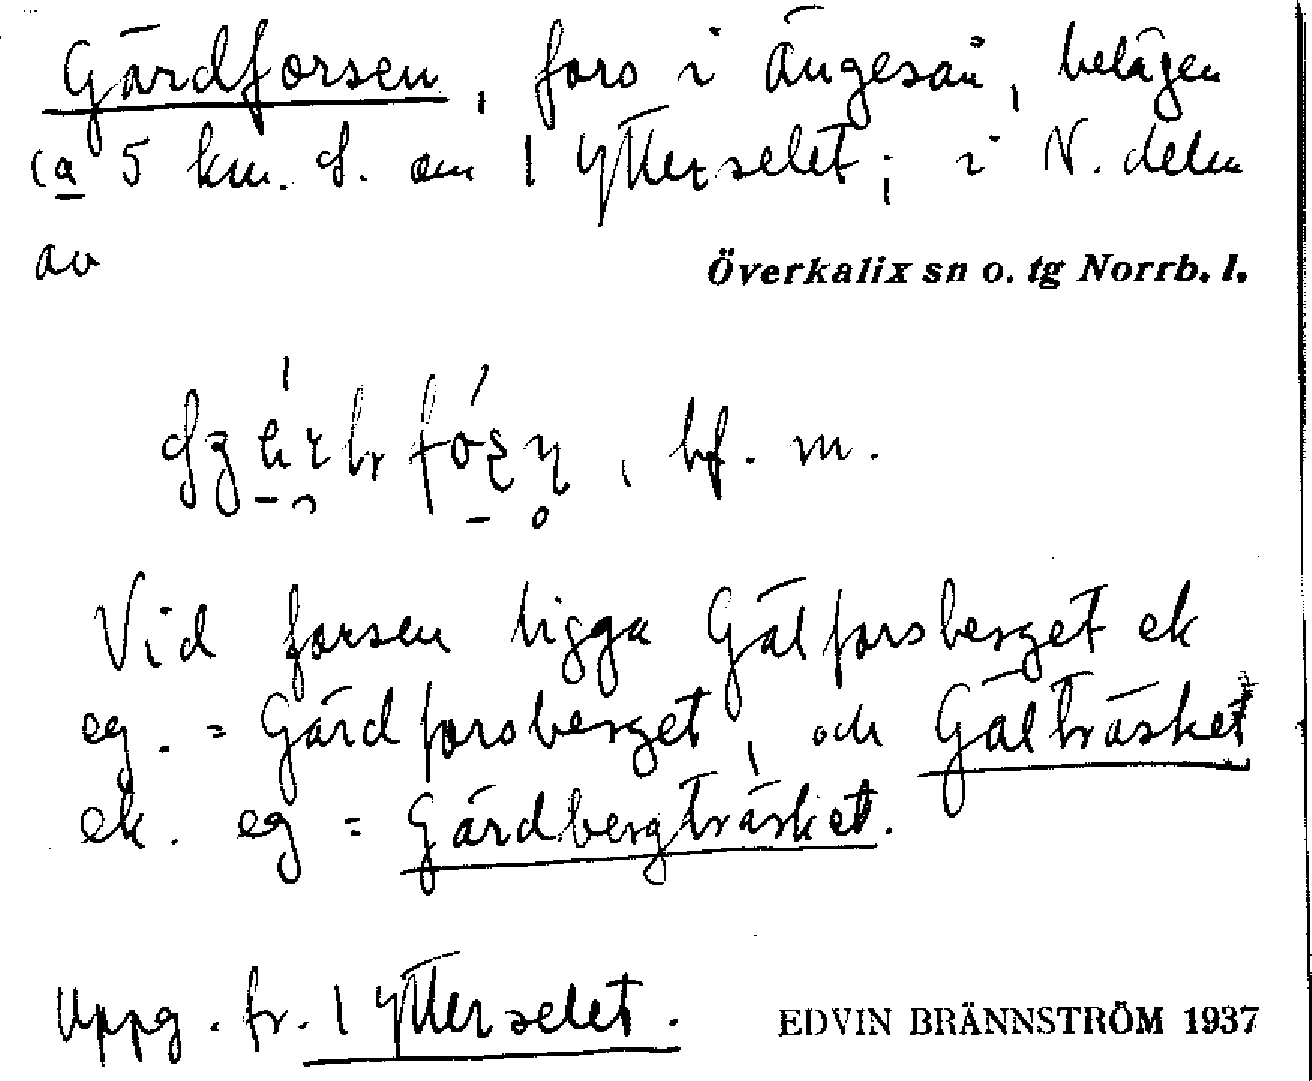 Gärdforsen, fors i Ängesån, belägen
ca 5 km. S. om 1 Ytterselet; i N. delen
av Överkalix sn o. tg Norrb. l.
, bf. m.
Vid forsen ligga Gälforsberget ek
eg. = Gärdforsberget, och Gälträsket
ek. eg = Gärdbergträsket.
Uppg. fr. 1 Ytterselet. EDVIN BRÄNNSTRÖM 1937